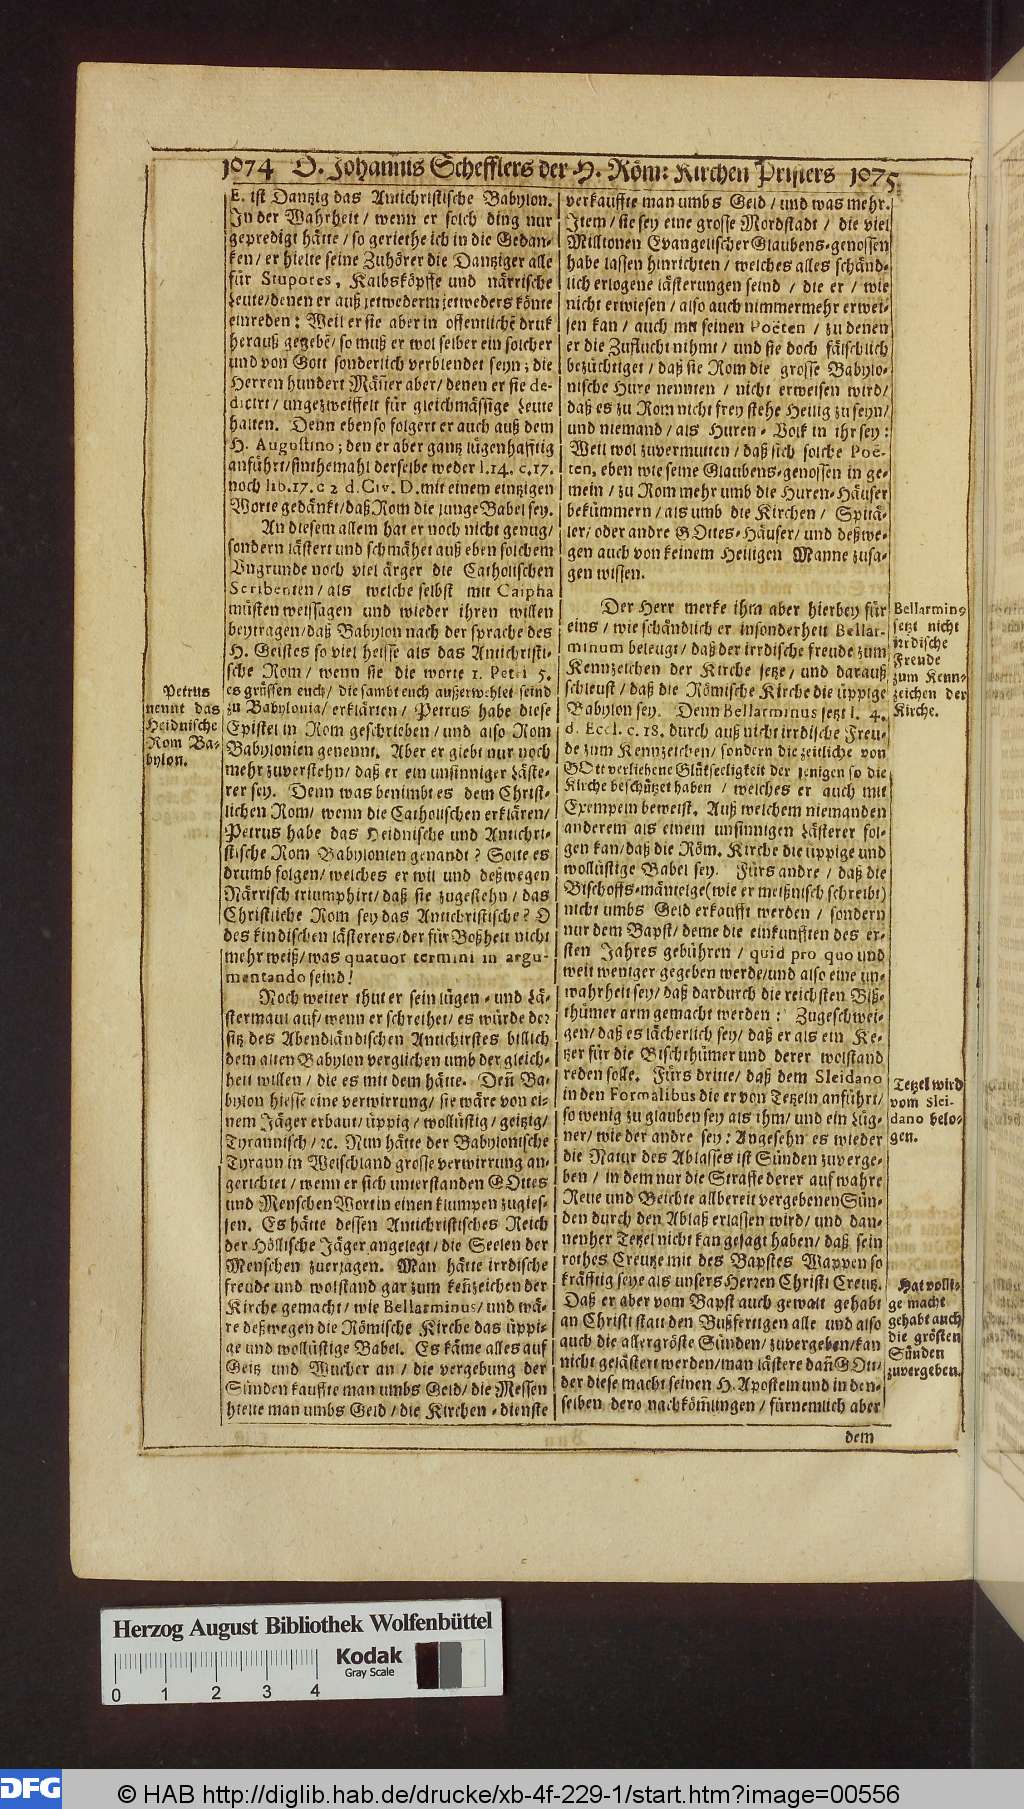 1074 D. Johannis Schefflers der H. Röm: Kirchen Pristers 1075
E. ist Dantzig das Antichristische Babylon.
In der Wahrheit / wenn er solch ding nur
gepredigt hätte / so geriethe ich in die Gedan-
ken / er hielte seine Zuhörer die Dantziger alle
für Stupores, Kalbsköpffe und närrische
Leute / denen er auß jetwederm jetweders könte
einreden: Weil er sie aber in offentlichē druk
herauß gegebē / so muß er wol selber ein solcher
und von Gott sonderlich verblendet seyn; die
Herren hundert Mäñer aber / denen er sie de-
dicirt / ungezweiffelt für gleichmässige Leute
halten. Denn eben so folgert er auch auß dem
H. Augustino; den er aber gantz lügenhafftig
anführt / sinthemahl derselbe weder l. 14. c. 17.
noch lib. 17. c 2 d. Civ. D. mit einem eintzigen
Worte gedänkt / daß Rom die junge Babel sey.
An diesem allem hat er noch nicht genug /
sondern lästert und schmähet auß eben solchem
Ungrunde noch viel ärger die Catholischen
Scribenten / als welche selbst mit Caipha
müsten weissagen und wieder ihren willen
beytragen / daß Babylon nach der sprache des
H. Geistes so viel heisse als das Antichristi-
sche Rom / wenn sie die worte 1. Petri 5.
es grüssen euch / die sambt euch außerwehlet seind
zu Babylonia / erklärten / Petrus habe diese
Epistel in Rom geschrieben / und also Rom
Babylonien genennt. Aber er giebt nur noch
mehr zuverstehn / daß er ein unsinniger Läste-
rer sey. Denn was benimbt es dem Christ-
lichen Rom / wenn die Catholischen erklären /
Petrus habe das Heidnische und Antichri-
stische Rom Babylonien genandt? Solte es
drumb folgen / welches er wil und deßwegen
Närrisch triumphirt / daß sie zugestehn / das
Christliche Rom sey das Antichristische? O
des kindischen lästerers / der für Boßheit nicht
mehr weiß / was quatuor termini in argu-
mentando seind!
Noch weiter thut er sein lügen- und Lä-
stermaul auf / wenn er schreibet / es würde der
sitz des Abendländischen Antichirstes billich
dem alten Babylon verglichen umb der gleich-
heit willen / die es mit dem hätte. Deñ Ba-
bylon hiesse eine verwirrung / sie wäre von ei-
nem Jäger erbaut / üppig / wollüstig / geitzig /
Tyrannisch / ꝛc. Nun hätte der Babylonische
Tyrann in Welschland grosse verwirrung an-
gerichtet / wenn er sich unterstanden GOttes
und Menschen Wort in einen klumpen zugies-
sen. Es hätte dessen Antichristisches Reich
der Höllische Jäger angelegt / die Seelen der
Menschen zuerjagen. Man hätte irrdische
freude und wolstand gar zum keñzeichen der
Kirche gemacht / wie Bellarminus / und wä-
re deßwegen die Römische Kirche das üppi-
ge und wollüstige Babel. Es käme alles auf
Geitz und Wucher an / die vergebung der
Sünden kauffte man umbs Geld / die Messen
hielte man umbs Geld / die Kirchen-dienste
Petrus
nennt das
Heidnische
Rom Ba-
bylon.
verkauffte man umbs Geld / und was mehr.
Item / sie sey eine grosse Mordstadt / die viel
Millionen Evangelischer Glaubens-genossen
habe lassen hinrichten / welches alles schänd-
lich erlogene lästerungen seind / die er / wie
nicht erwiesen / also auch nimmermehr erwei-
sen kan / auch mit seinen Poëten / zu denen
er die Zuflucht nihmt / und sie doch fälschlich
bezüchtiget / daß sie Rom die grosse Babylo-
nische Hure nennten / nicht erweisen wird /
daß es zu Rom nicht frey stehe Heilig zu seyn /
und niemand / als Huren-Volk in ihr sey:
Weil wol zuvermutten / daß sich solche Poë-
ten, eben wie seine Glaubens-genossen in ge-
mein / zu Rom mehr umb die Huren-Häuser
bekümmern / als umb die Kirchen / Spitä-
ler / oder andre GOttes-Häuser / und deßwe-
gen auch von keinem Heiligen Manne zusa-
gen wissen.
Der Herr merke ihm aber hierbey für
eins / wie schändlich er insonderheit Bellar-
minum beleugt / daß der irrdische freude zum
Kennzeichen der Kirche setze / und darauß
schleust / daß die Römische Kirche die üppige
Babylon sey. Denn Bellarminus setzt l. 4.
d. Eccl. c. 18. durch auß nicht irrdische Freu-
de zum Kennzeichen / sondern die zeitliche von
GOtt verliehene Glükseeligkeit der jenigen so die
Kirche beschützet haben / welches er auch mit
Exempeln beweist. Auß welchem niemanden
anderem als einem unsinnigen Lästerer fol-
gen kan / daß die Röm. Kirche die üppige und
wollüstige Babel sey. Fürs andre / daß die
Bischoffs-mäntelge (wie er meißnisch schreibt)
nicht umbs Geld erkaufft werden / sondern
nur dem Bapst / deme die einkunfften des er-
sten Jahres gebühren / quid pro quo und
weit weniger gegeben werde / und also eine un-
wahrheit sey / daß dardurch die reichsten Biß-
thümer arm gemacht werden: Zugeschwei-
gen / daß es lächerlich sey / daß er als ein Ke-
tzer für die Bischthümer und derer wolstand
reden solle. Fürs dritte / daß dem Sleidano
in den Formalibus die er von Tetzeln anführt /
so wenig zu glauben sey als ihm / und ein Lüg-
ner / wie der andre sey: Angesehn es wieder
die Natur des Ablasses ist Sünden zuverge-
ben / in dem nur die Straffe derer auf wahre
Reue und Beichte allbereit vergebenen Sün-
den durch den Ablaß erlassen wird / und dan-
nenher Tetzel nicht kan gesagt haben / daß sein
rothes Creutze mit des Bapstes Wappen so
kräfftig seye als unsers Herren Christi Creutz.
Daß er aber vom Bapst auch gewalt gehabt
an Christi statt den Bußfertigen alle und also
auch die allergröste Sünden / zuvergeben / kan
nicht gelästert werden / man lästere dañ GOtt /
der diese macht seinen H. Aposteln und in den-
selben dero nachkom̃lingen / fürnemlich aber
Bellarmin9
setzt nicht
irrdische
Freude
zum Kenn-
zeichen der
Kirche.
Tetzel wird
vom Slei-
dano belo-
gen.
Hat völli-
ge macht
gehabt auch
die grösten
Sünden
zuvergeben.
dem
Herzog August Bibliothek Wolfenbüttel
Kodak
Gray Scale
0 1 2 3 4
DFG
© HAB http://diglib.hab.de/drucke/xb-4f-229-1/start.htm?image=00556